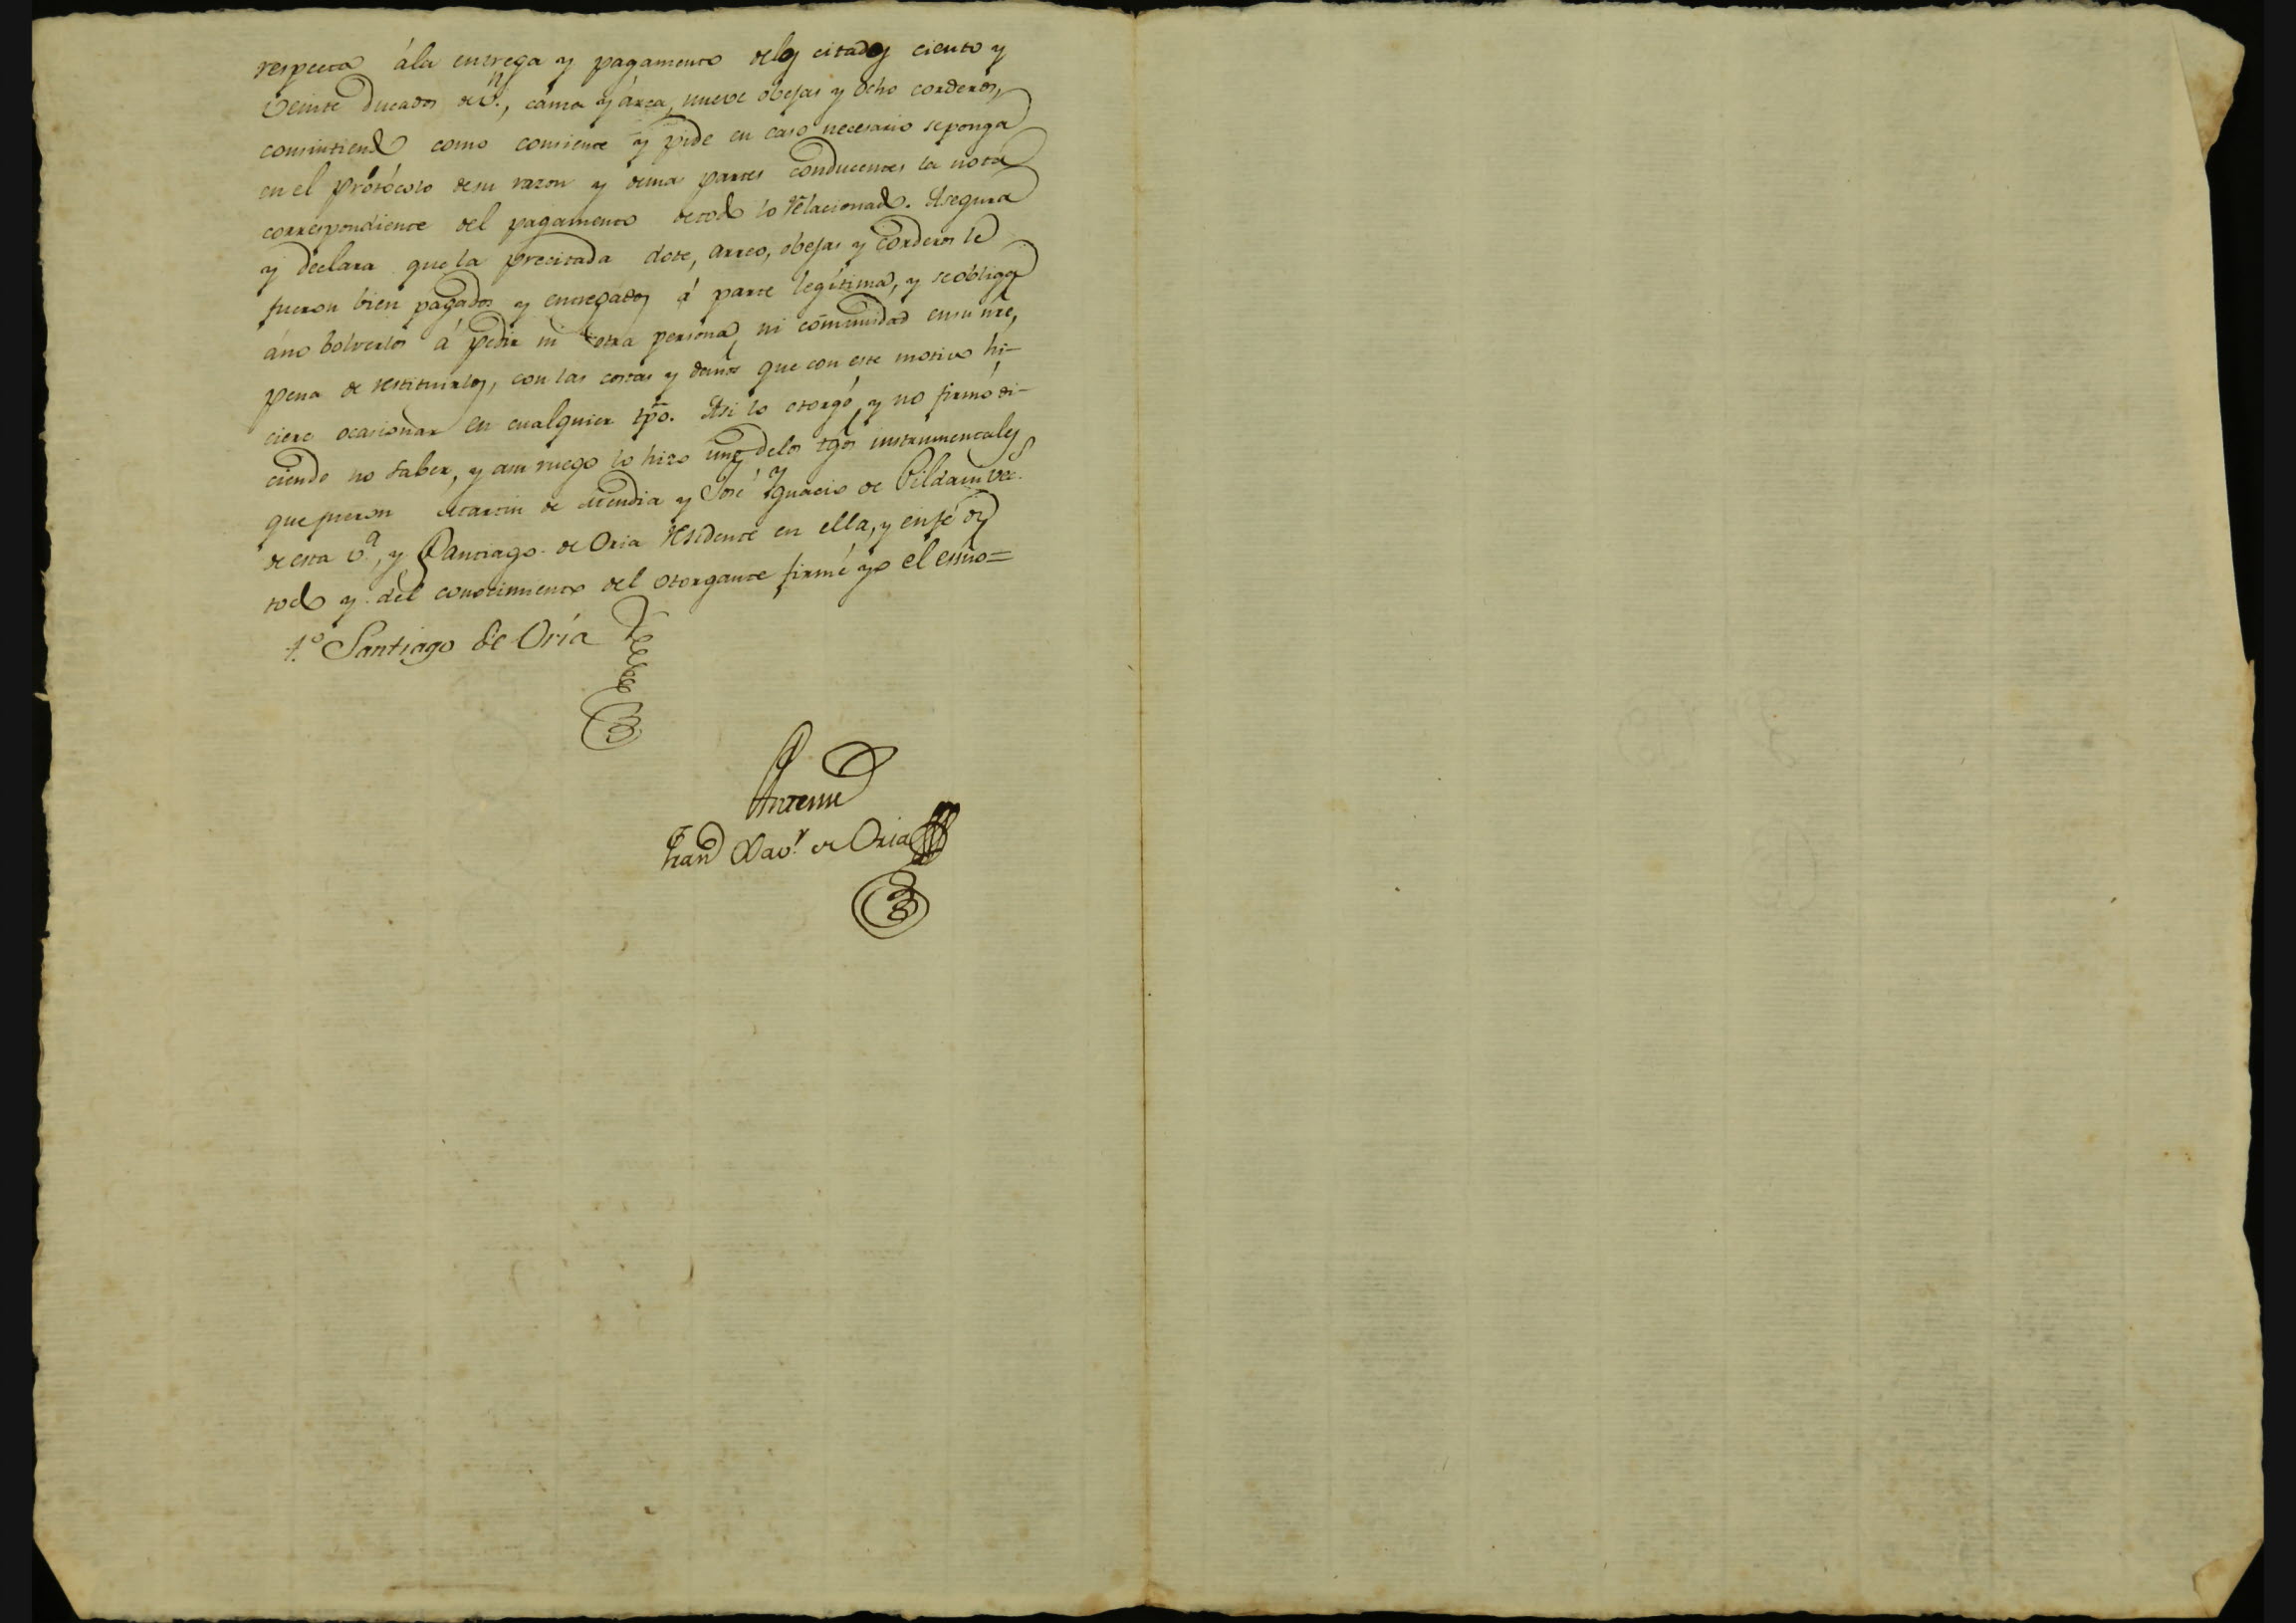 respecta á la entrega y pagamento delos citados ciento y
veinte ducados de v.n, cama y árca, nueve obejas y ocho corderos,
consintiendo como consiente y pide en caso necesario se ponga
en el protócolo de su razon y demas partes conducentes la nota
correspondiente del pagamento de todo lo relacionado. Asegura
y declara que la precitada dote, arreo, obejas y corderos le
fueron bien pagados y entregados á parte legítima, y se obliga
áno bolverlos á pedir ni otra persona, ni comunidad en su nre,
pena de restituirlos, con las costas y daños que con este motivo hi-
ciere ocasionar en cualquier tpo. Asi lo otorgó, y no firmó di-
ciendo no saber, y asu ruego lo hizo uno delos tgos instrumentales
que fueron Martin de Mendia y José Ygnacio de Vildain vec.s
de esta v.a, y Santiago de Oria residente en ella, y enfé de
todo y del conocimiento del otorgante firmé yo el esno=
t.o Santiago de Oría
Antemi
Fran.co Xav.r de Oria